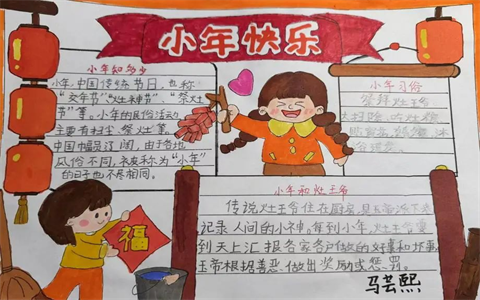 小年快乐
小年知多少
小年,中国传统节日,也称
"交年节""灶神节""祭灶
节"等。小年的民俗活动
主要有扫尘、祭灶等。
中国幅员辽阔,由于各地
风俗不同,被称为"小年"
的日子也不尽相同。
小年习俗
祭拜灶王爷
大扫除、吃灶糖
小年和灶王爷
传说灶王爷住在厨房,是
记录人间的小神。每到小年,灶王爷
到天上汇报各家各户做的好事和坏事,
玉帝根据善恶,做出奖励或惩罚。
福
马芸熙